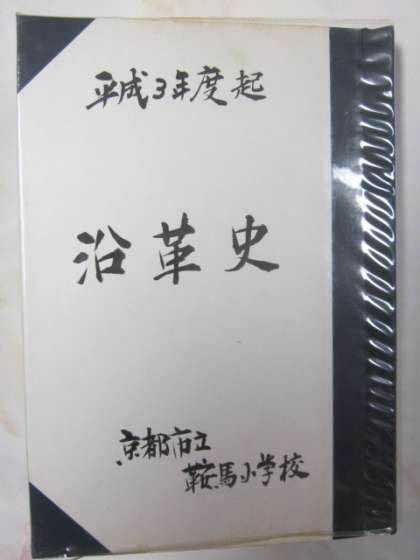 平成3年度起
沿革史
京都市立
鞍馬小学校